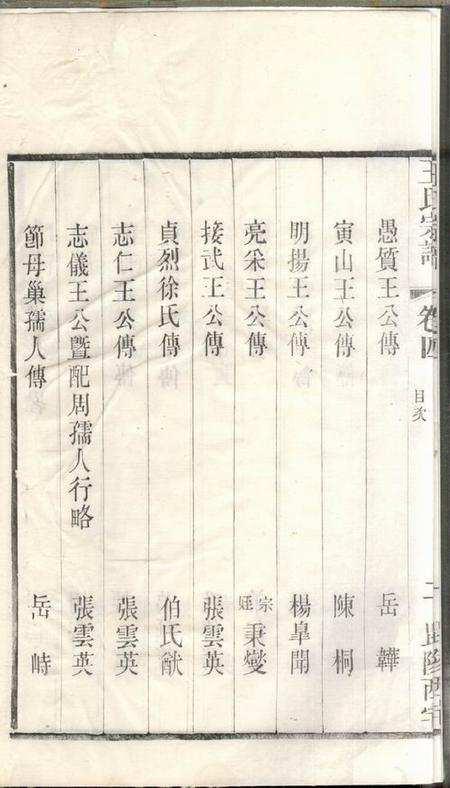 王氏宗譜 卷四 目次 二
愚質王公傳 岳鞾
寅山王公傳 陳桐
明揚王公傳 楊臯聞
亮采王公傳 宗姪秉燮
接武王公傳 張雲英
貞烈徐氏傳 伯氏猷
志仁王公傳 張雲英
志儀王公曁配周孺人行略 張雲英
節母巢孺人傳 岳峙